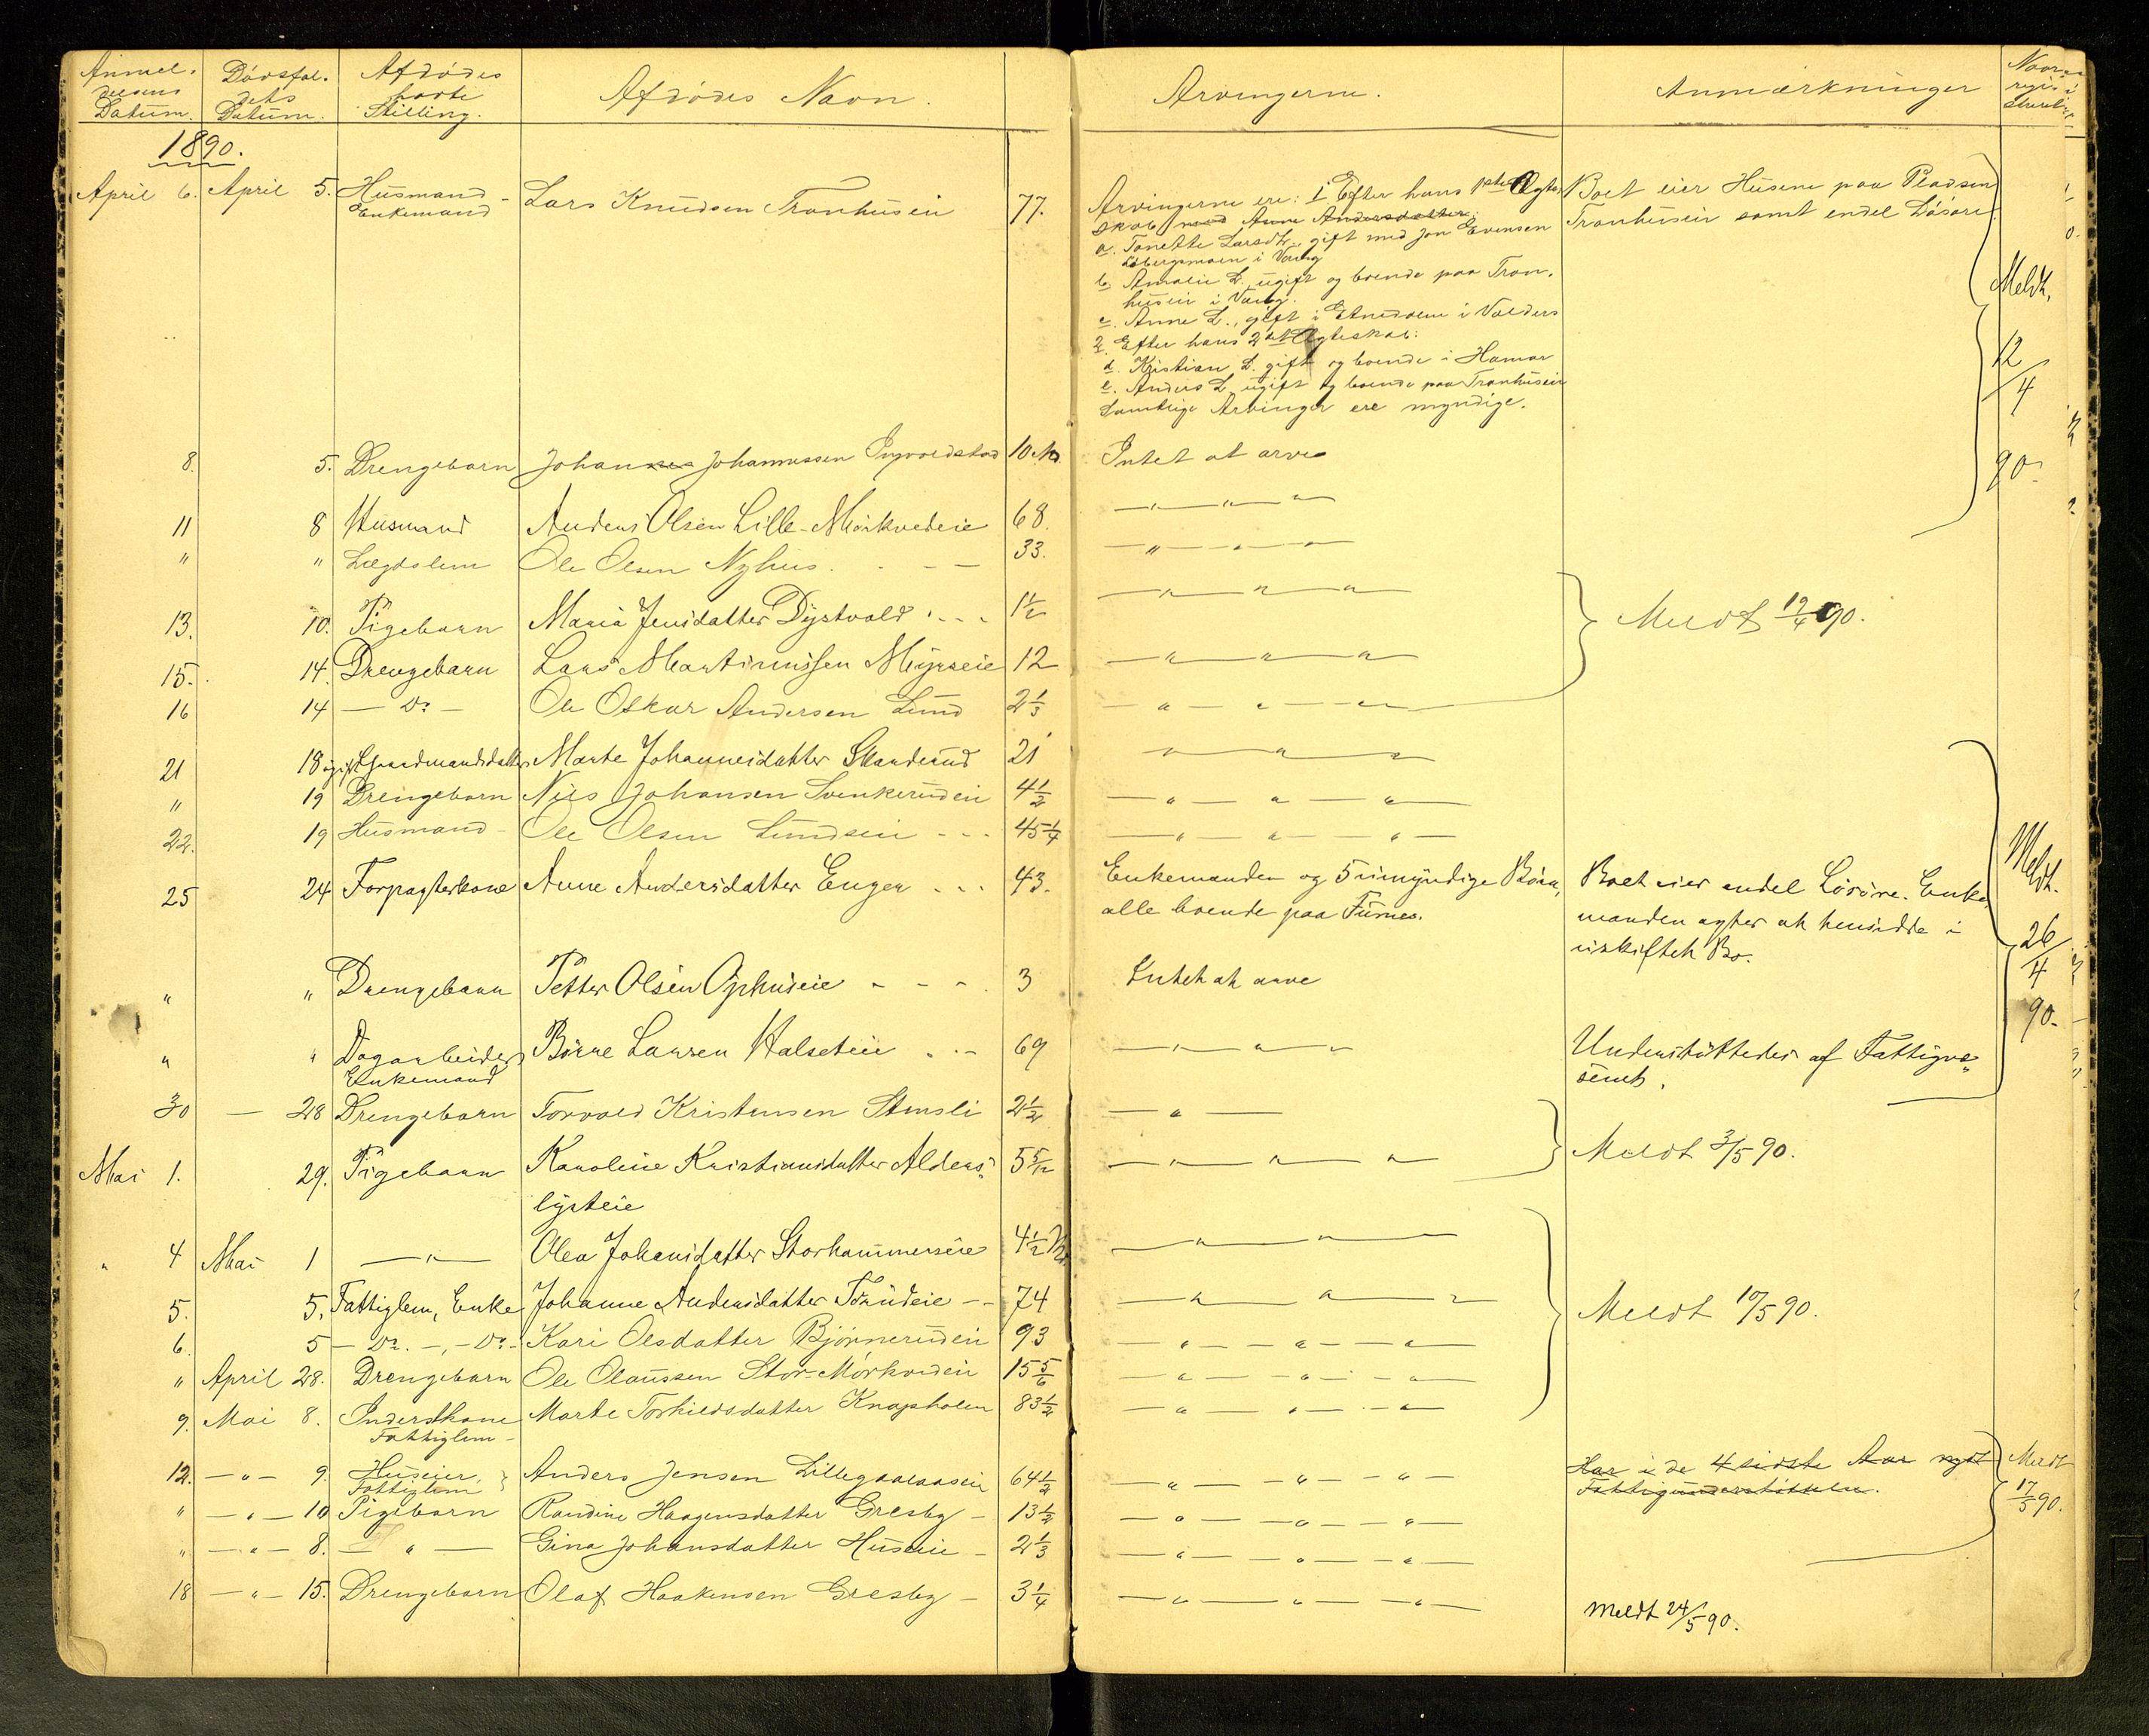 Anmel- Dödsfal- Afdödes Afdödes Navn. Arvingerne. Anmærkninger
delsens dets havte
Datum. Datum. Stilling.
1890.
April 6. April 5. Husmand - Lars Knudsen Tronhuseie 77.
Enkemand
Arvingerne ere: 1 Efter hans 1ste Ægte-
skab med Anne Andersdatter:
a. Tonette Larsdtr., gift med Jon Evensen
i Vang
b. Amalie L. ugift og boende paa Tron-
huseie i Vang.
c. Anne L., gift i Etnedalen i Valders
2. Efter hans 2det Ægteskab:
d. Kristian L. gift og boende i Hamar
e. Anders L. ugift og boende paa Tronhuseie
Samtlige Arvinger ere myndige.
Boet eier Husene paa Pladsen
Tronhuseie samt endel Lösöre.
Meldt.
12/4
90.
8. 5. Drengebarn Johannes Johannessen Ingvoldstad 10 M. Intet at arve
11 8 Husmand Anders Olsen Lille-Mörkvedeie 68. — " — " — "
" " Lægdslem Ole Olsen Nyhus. - - — 33. — " — " — "
13. 10. Pigebarn Maria Jensdatter Dystvold - - - 1½ — " — " — "
15. 14. Drengebarn Lars Martinussen Myrseie 12 — " — " — "
16 14 — Do — Ole Oskar Andersen Lund 2⅓ — " — " — "
Meldt 19/4 90.
21 18 ugift Gaardmandsdatter Marte Johannesdatter Skarderud 21 — " — " — "
" 19 Drengebarn Nils Johansen Svenkerudeie 4½ — " — " — "
22. 19 Husmand - Ole Olsen Lundseie - - - 45¼ — " — " — "
25 24 Forpagterkone Anne Andersdatter Enger - - - 43. Enkemanden og 5 umyndige Börn, Boet eier endel Lösöre. Enke-
alle boende paa Furnes. manden agter at hensidde i
uskiftet Bo.
" " Drengebarn Petter Olsen Ophuseie - - - - 3 Intet at arve
" " Dagarbeider, Börre Larsen Halseteie - - - 69 — " — " — " Understöttedes af Fattigvæ-
Enkemand senet.
Meldt.
26/4
90.
30 — 28 Drengebarn Torvald Kristensen Stensli 2½ — " —
Mai 1. 29. Pigebarn Karoline Kristiansdatter Alders- 5 5/12 — " — " — "
lysteie
Meldt 3/5 90.
" 4 Mai 1 — " — Olea Johansdatter Storhammerseie 4½ M. — " — " — "
5. 5. Fattiglem, Enke Johanne Andersdatter Törudeie - - 74 — " — " — "
6. 5 — Do. —, — Do. - Kari Olsdatter Björnerudeie 93 — " — " — "
" April 28. Drengebarn Ole Olaussen Stor-Mörkvedeie 15⅚ — " — " — "
9. Mai 8. Inderstkone Marte Torkildsdatter Knapholen 83½ — " — " — "
Fattiglem -
Meldt 10/5 90.
12. — " — 9. Huseier, Anders Jensen Lillegaalaaseie 64½ — " — " — " Har i de 4 sidste Aar nydt
Fattiglem Fattigunderstöttelse.
" — " — 10 Pigebarn Randine Haagensdatter Gresby - 13½ — " — " — "
" — " — 8. — " — Gina Johansdatter Huseie - 2⅓ — " — " — "
Meldt
17/5 90.
18 — " — 15. Drengebarn Olaf Haakensen Gresby - 3¼ — " — " — "
Meldt 24/5 90.